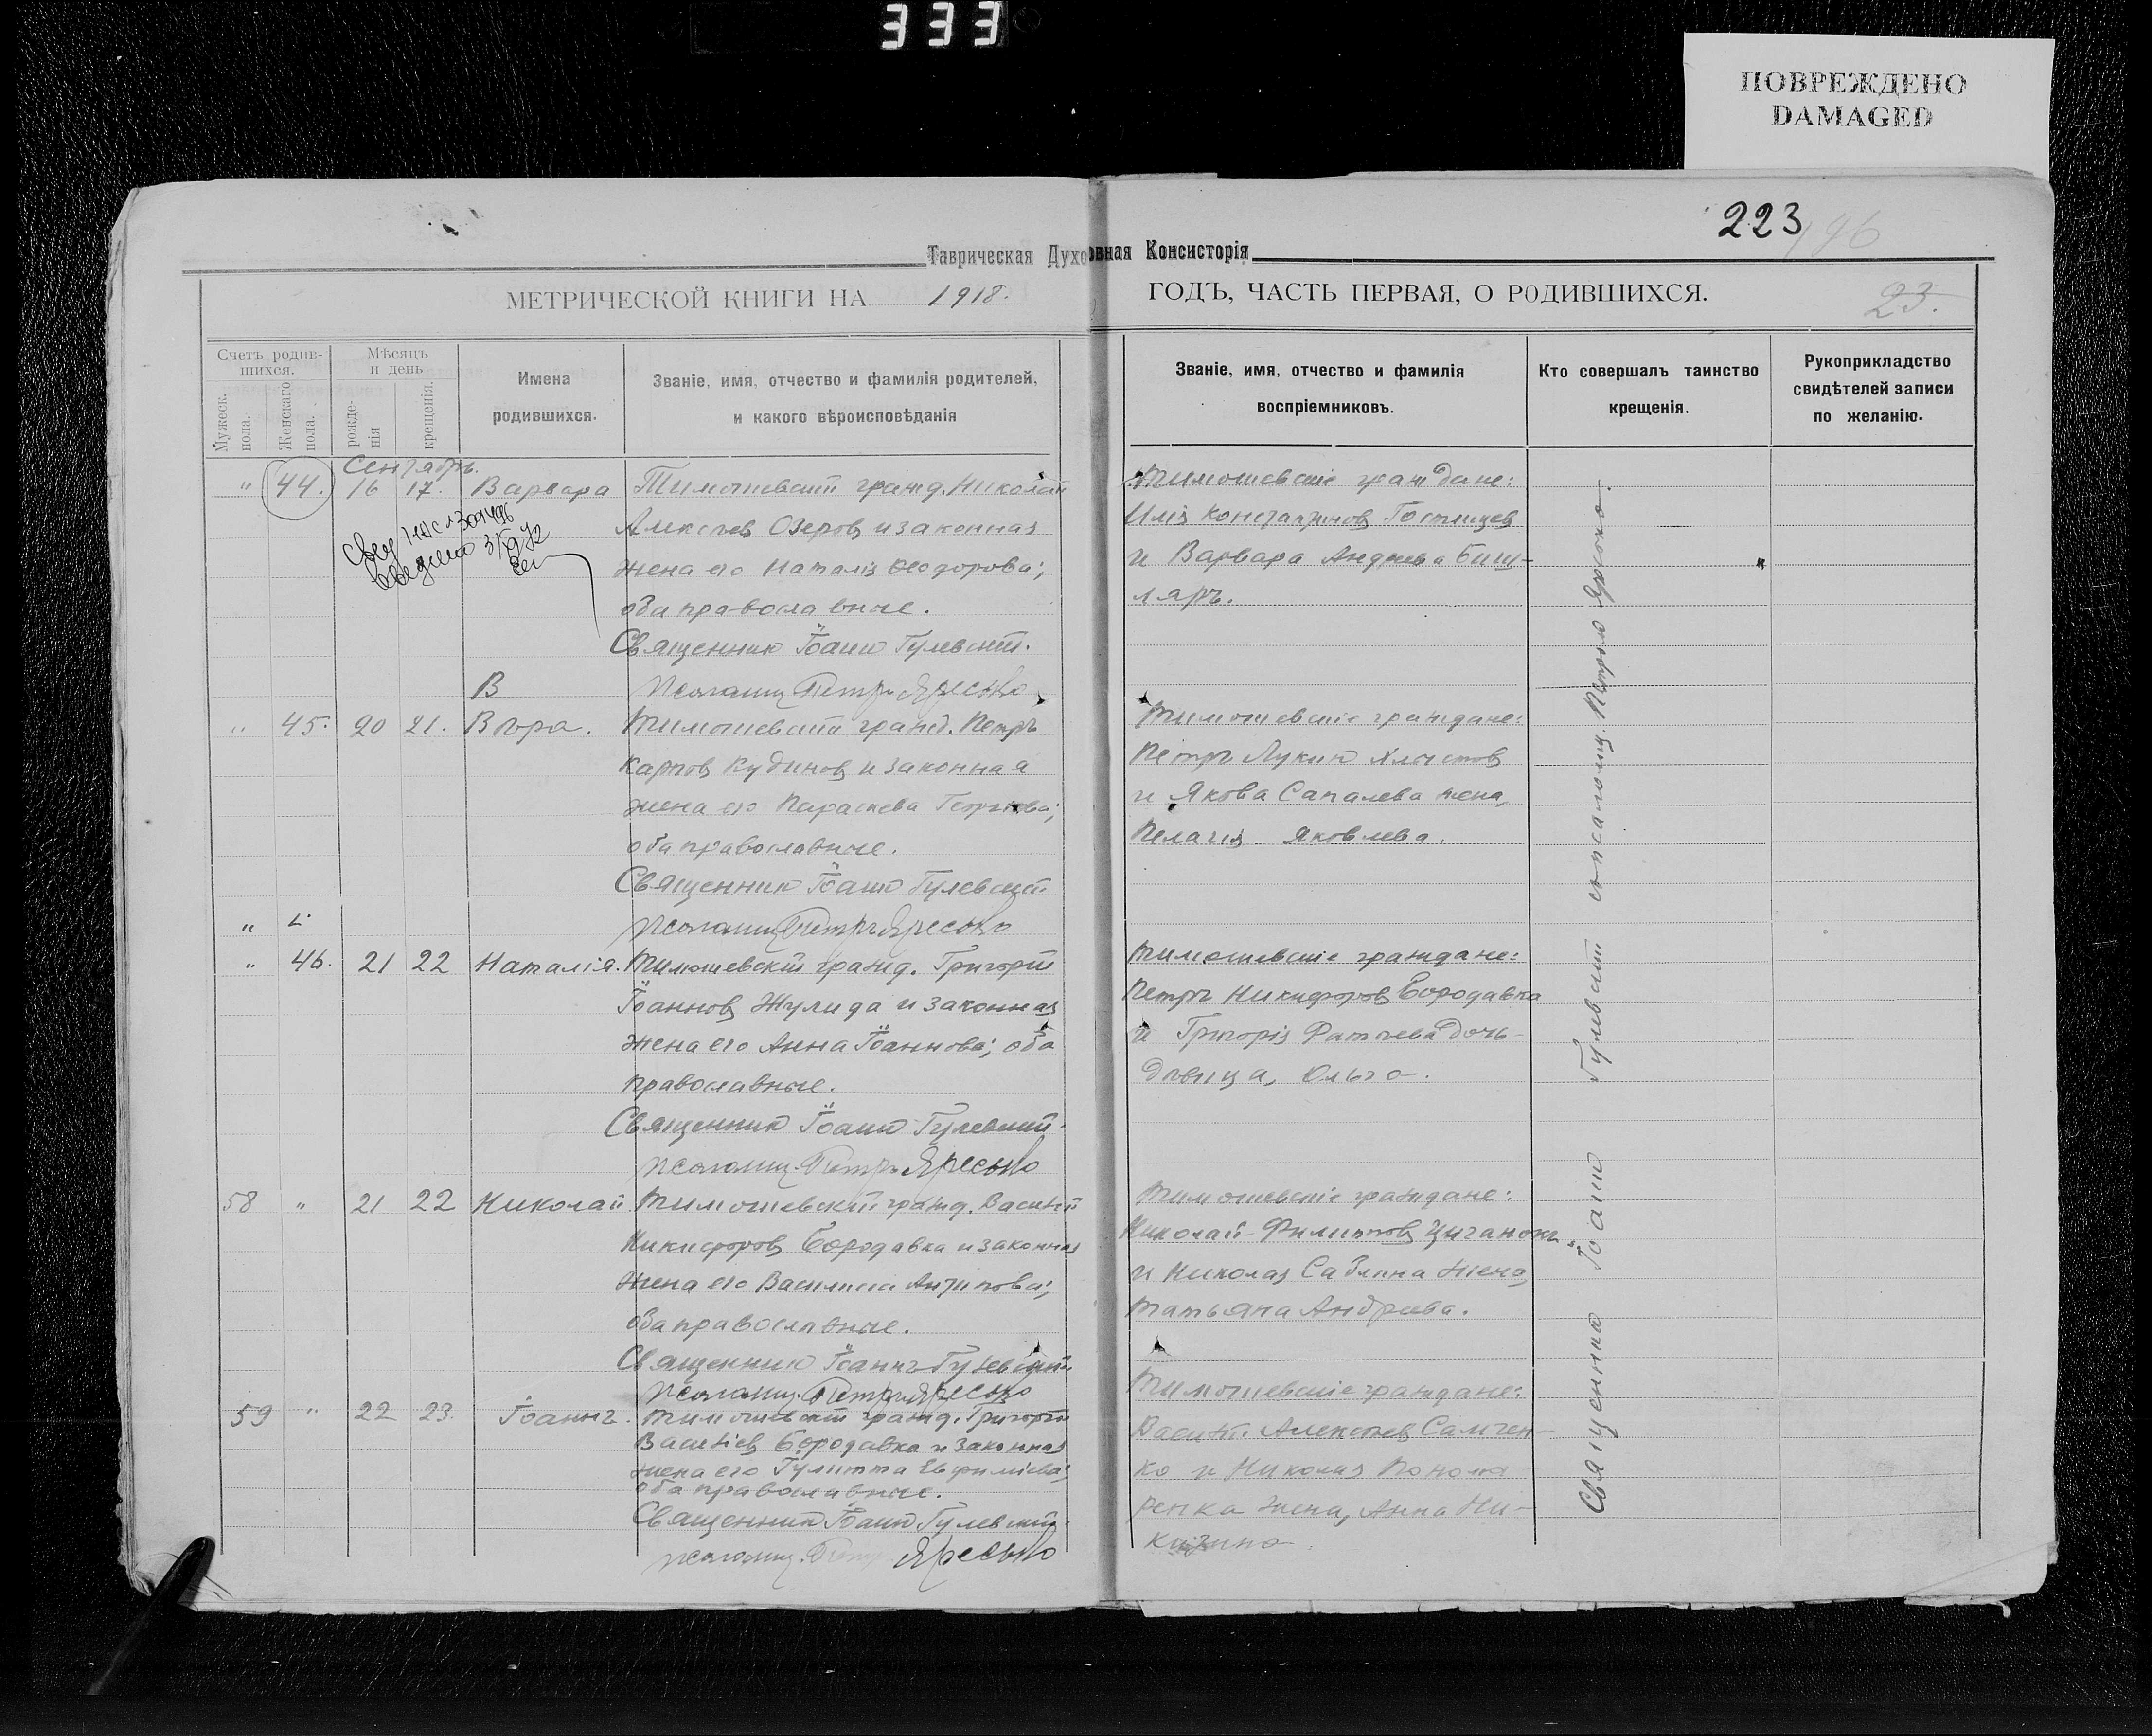 333
ПОВРЕЖДЕНО
DAMAGED
223
196
Таврическая Духовная Консисторія
МЕТРИЧЕСКОЙ КНИГИ НА 1918. ГОДЪ, ЧАСТЬ ПЕРВАЯ, О РОДИВШИХСЯ.
23.
Счетъ родив-
шихся.
Мужеск. пола.
Женскаго пола.
Мѣсяцъ
и день
рожде-
нія
крещенія.
Имена
родившихся.
Званіе, имя, отчество и фамилія родителей,
и какого вѣроисповѣданія
Званіе, имя, отчество и фамилія
воспріемниковъ.
Кто совершалъ таинство
крещенія.
Рукоприкладство
свидѣтелей записи
по желанію.
Сентябрь.
" 44. 16 17. Варвара Тимошевскій гражд. Николай
Алексѣев Озеров и законная
жена его Наталія Ѳеодорова;
оба православные.
Священник Іоанн Гулевскій.
В Псаломщ. Петръ Яресько
" 45. 20 21. Вѣра. Тимошевскій гражд. Петръ
Карпов Кудинов и законная
жена его Параскева Георгіева;
оба православные.
Священник Іоанн Гулевскій
" Псаломщ. Петръ Яресько
" 46. 21 22 Наталія. Тимошевскій гражд. Григорій
Іоаннов Жулида и законная
жена его Анна Іоаннова; оба
православные.
Священник Іоанн Гулевскій.
Псаломщ. Петръ Яресько
58 " 21 22 Николай Тимошевскій гражд. Василій
Никифоров Бородавка и законная
жена его Василиса Антипова;
оба православные.
Священник Іоаннъ Гулевскій
Псаломщ. Петръ Яресько
59 " 22 23. Іоаннъ. Тимошевскій гражд. Григорій
Василіев Бородавка и законная
жена его Гулитта Евфиміева;
оба православные.
Священник Іоанн Гулевскій.
Псаломщ. Петр Яресько
Тимошевскіе граждане:
Илія Константинов Гостищев
и Варвара Андреева Биш-
ляръ.
Тимошевскіе граждане:
Петръ Лукин Хлыстов
и Якова Сапалева жена,
Пелагія Яковлева.
Тимошевскіе граждане:
Петръ Никифоров Бородавка
и Григорія дочь
дѣвица, Ольга.
Тимошевскіе граждане:
Николай Филиппов Цыганокъ
и Николая Саблина жена
Татьяна Андреева.
Тимошевскіе граждане:
Василій Алексѣев Самчен-
ко и Николая Понома
ренка жена, Анна Ни-
Священник Іоанн Гулевскій с псаломщ. Петром Яресько.